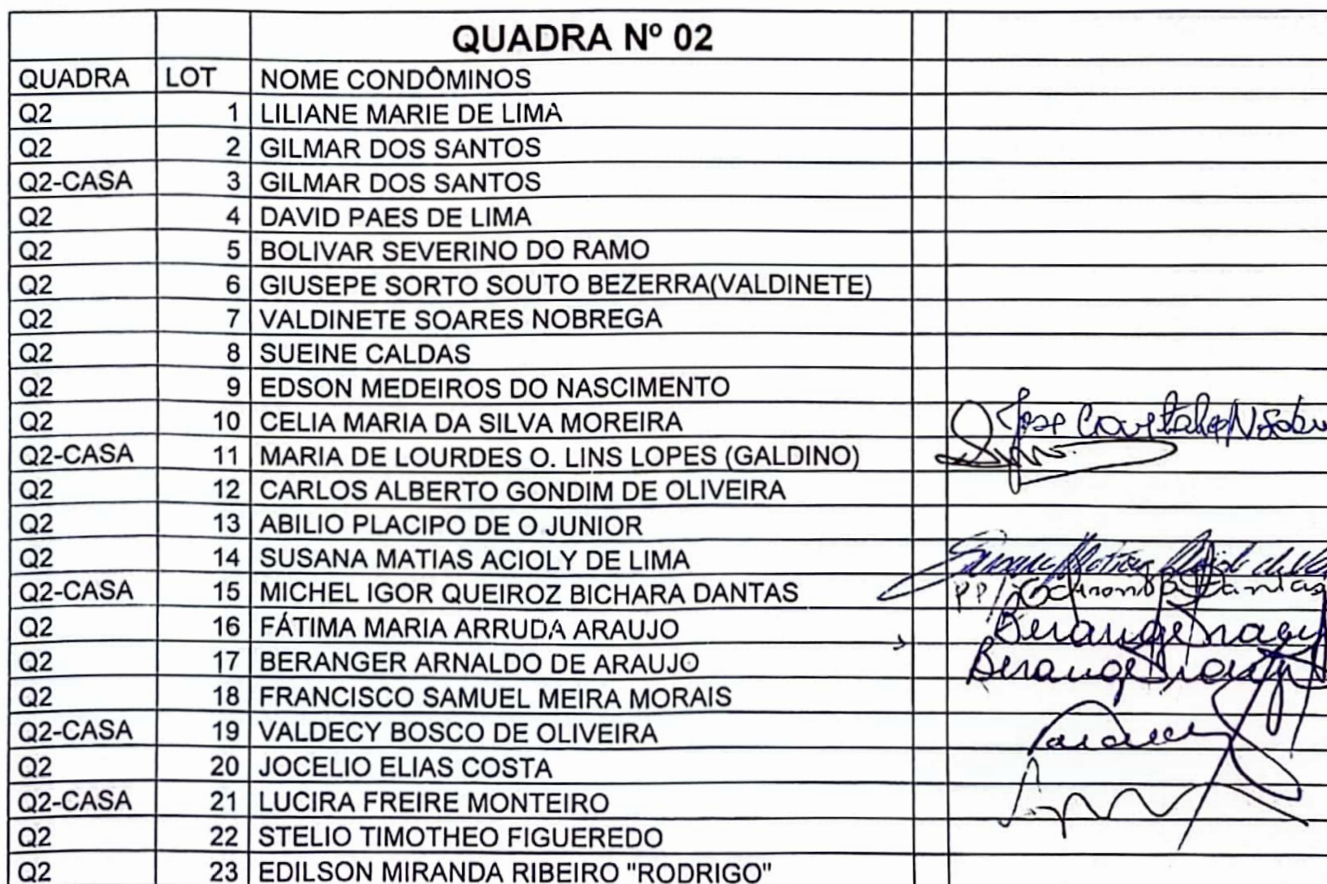 QUADRA Nº 02
QUADRA LOT NOME CONDÔMINOS
Q2 1 LILIANE MARIE DE LIMA
Q2 2 GILMAR DOS SANTOS
Q2-CASA 3 GILMAR DOS SANTOS
Q2 4 DAVID PAES DE LIMA
Q2 5 BOLIVAR SEVERINO DO RAMO
Q2 6 GIUSEPE SORTO SOUTO BEZERRA(VALDINETE)
Q2 7 VALDINETE SOARES NOBREGA
Q2 8 SUEINE CALDAS
Q2 9 EDSON MEDEIROS DO NASCIMENTO
Q2 10 CELIA MARIA DA SILVA MOREIRA Jose
Q2-CASA 11 MARIA DE LOURDES O. LINS LOPES (GALDINO)
Q2 12 CARLOS ALBERTO GONDIM DE OLIVEIRA
Q2 13 ABILIO PLACIPO DE O JUNIOR
Q2 14 SUSANA MATIAS ACIOLY DE LIMA
Q2-CASA 15 MICHEL IGOR QUEIROZ BICHARA DANTAS PP/ Dantas
Q2 16 FÁTIMA MARIA ARRUDA ARAUJO
Q2 17 BERANGER ARNALDO DE ARAUJO
Q2 18 FRANCISCO SAMUEL MEIRA MORAIS
Q2-CASA 19 VALDECY BOSCO DE OLIVEIRA
Q2 20 JOCELIO ELIAS COSTA
Q2-CASA 21 LUCIRA FREIRE MONTEIRO
Q2 22 STELIO TIMOTHEO FIGUEREDO
Q2 23 EDILSON MIRANDA RIBEIRO "RODRIGO"